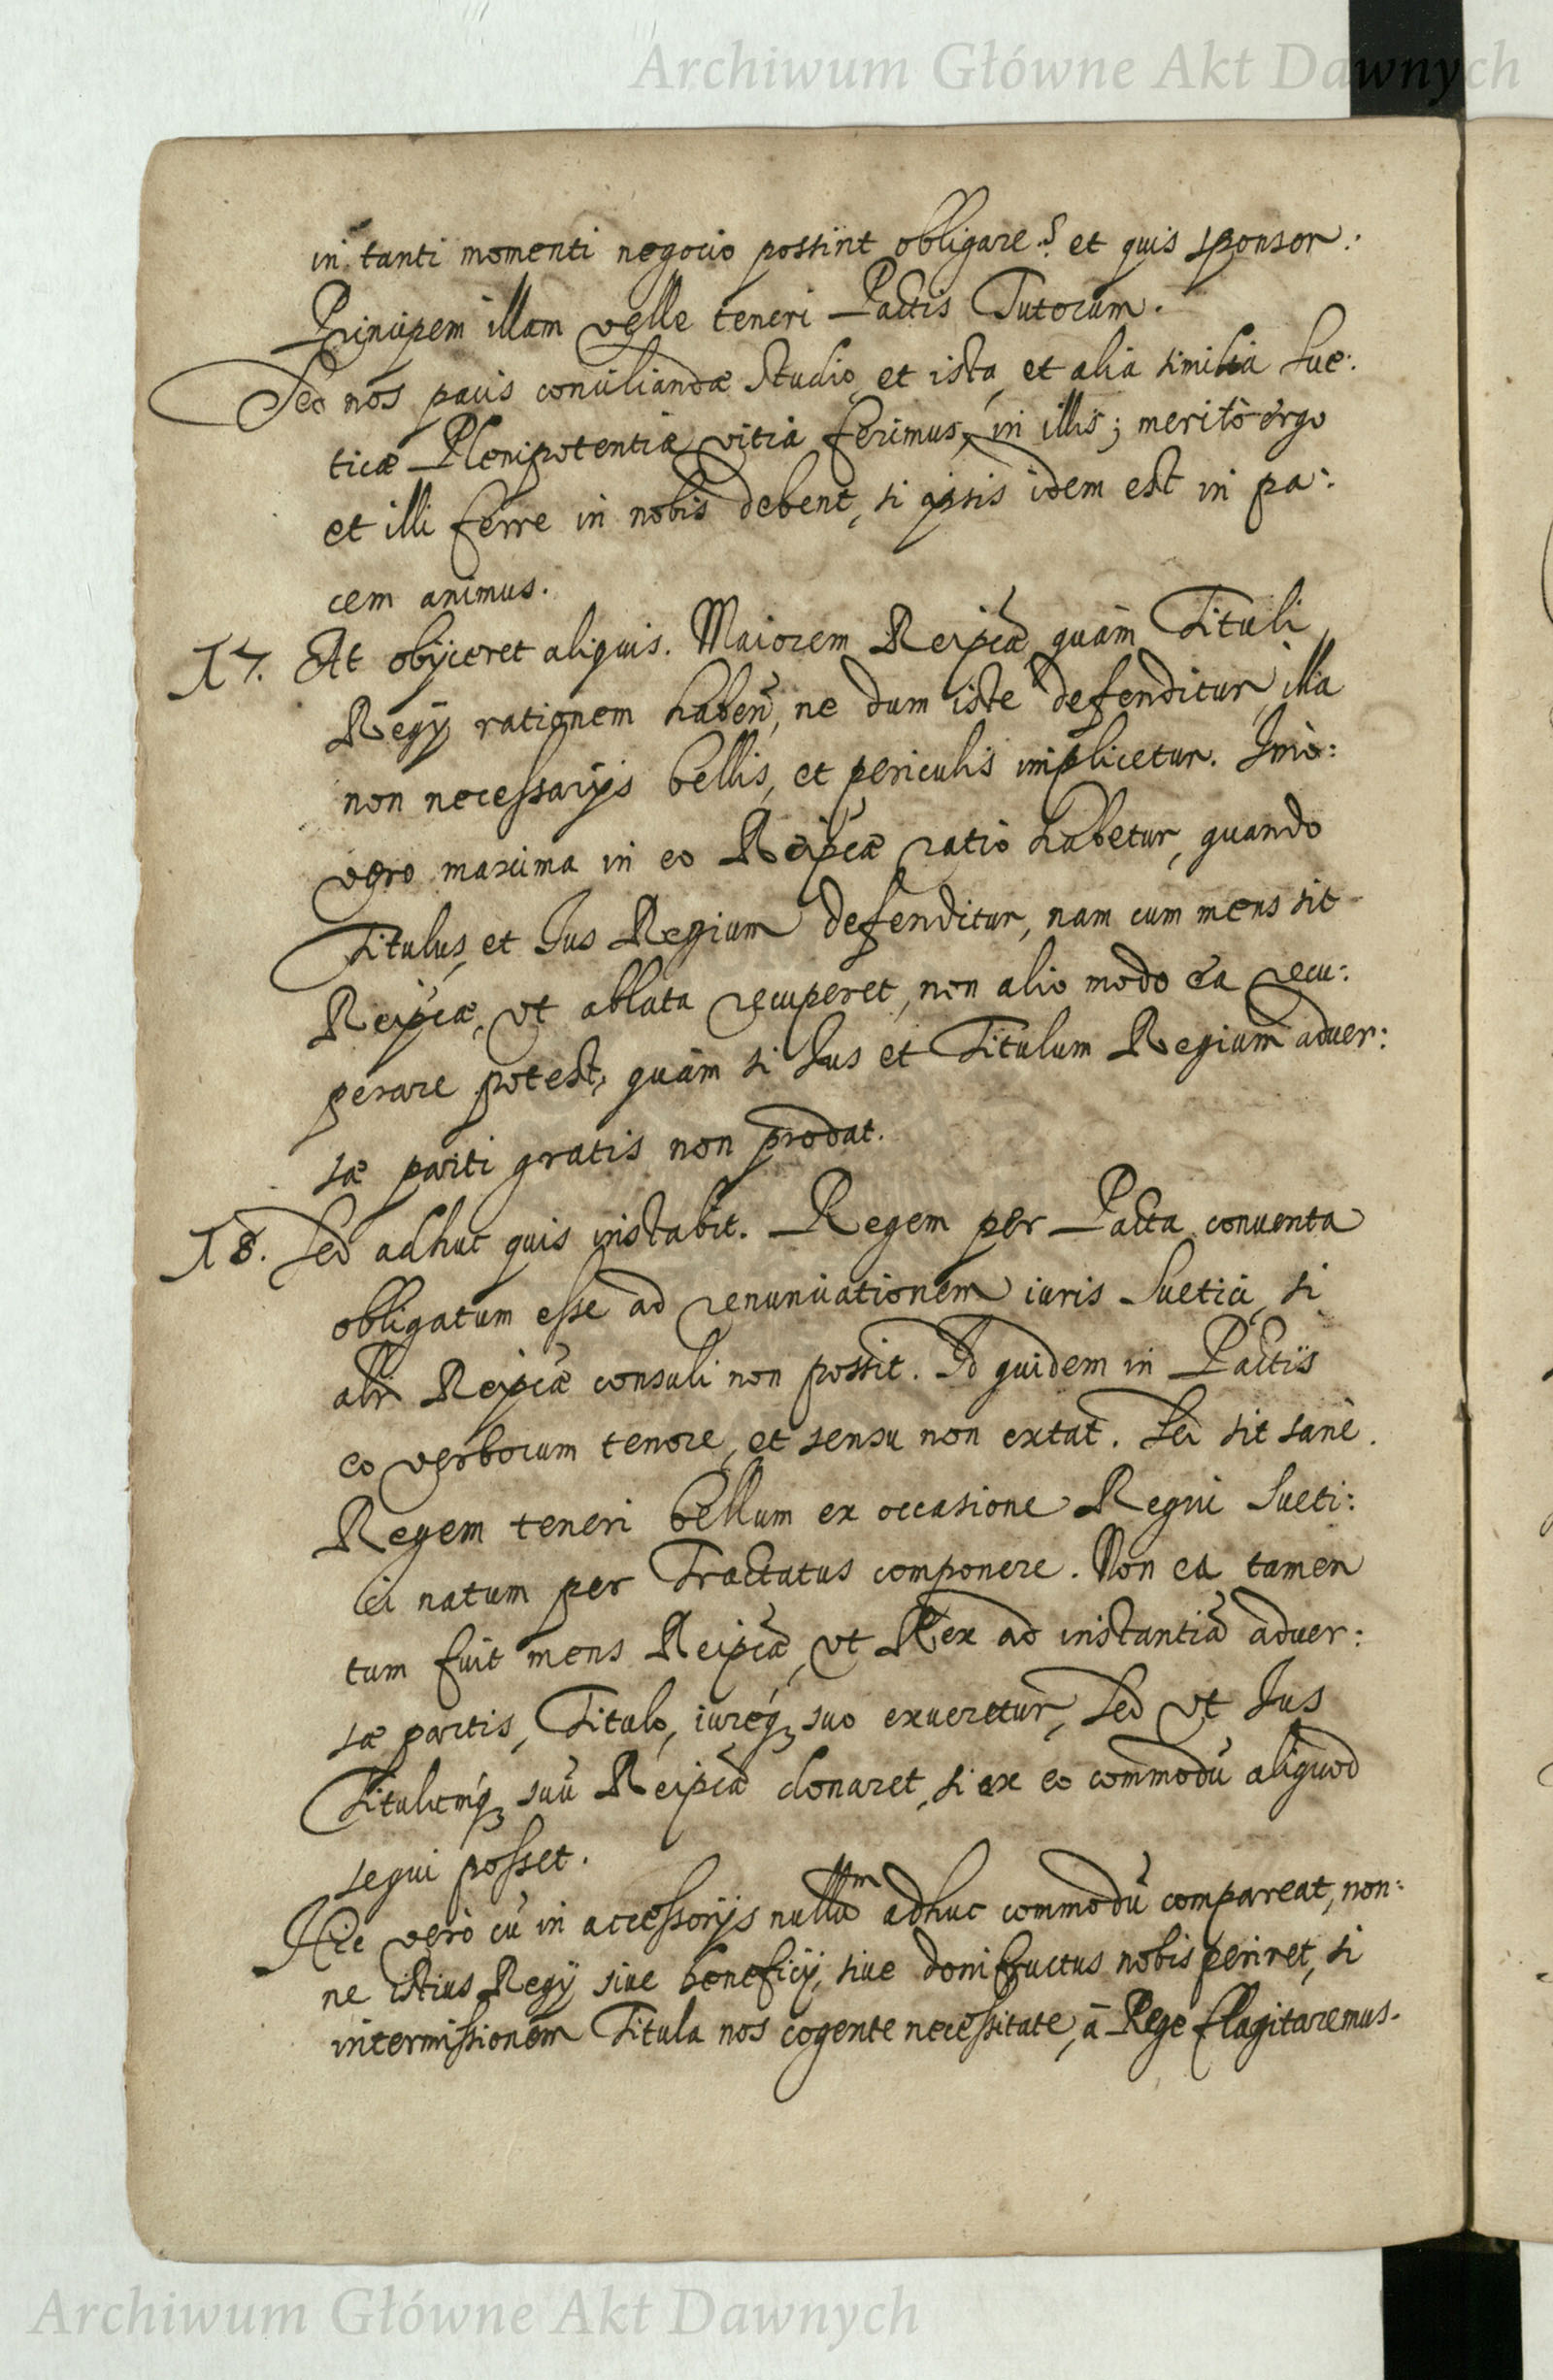 Archiwum Główne Akt Dawnych
in tanti momenti negocio possint obligare? et quis sponsor:
Principem illam velle teneri Pactis Tutorum.
Sed nos pacis conciliandæ studio et ista, et alia similia Sue:
ticæ Plenipotentiæ vitia ferimus, in illis; meritò ergo
et illi ferre in nobis debent, si ipsis idem est in pa:
cem animus.
17. At obijceret aliquis. Maiorem Reipcæ quàm Tituli
Regij rationem haben̄, ne dum iste defenditur, illa
non necessarijs bellis, et periculis implicetur. Imò:
vero maxima in eo Reipcæ ratio habetur, quando
Titulus, et Ius Regium defenditur, nam cum mens sit
Reipcæ, vt ablata recuperet, non alio modo ea recu:
perare potest, quàm si Ius et Titulum Regium aduer:
sæ parti gratis non prodat.
18. Sed adhuc quis instabit. Regem per Pacta conuenta
obligatum esse ad renunciationem iuris Suetici, si
altr Reipcæ consuli non possit. Id quidem in Pactis
eo verborum tenore, et sensu non extat. Sed sit sanè.
Regem teneri bellum ex occasione Regni Sueti:
ci natum per Tractatus componere. Non ea tamen
tum fuit mens Reipcæ, vt Rex ad instantiā aduer:
sæ partis, Titulo, iureq́ suo exueretur, sed vt Ius
Titulumq́ suū Reipcæ donaret, si ex eo commodū aliquod
sequi posset.
Hic verò cū in accessorijs nullum adhuc commodū compareat, non:
ne istius Regij siue beneficij, siue doni fructus nobis periret, si
intermissionem Tituli nos cogente necessitate, à Rege flagitaremus.
Archiwum Główne Akt Dawnych